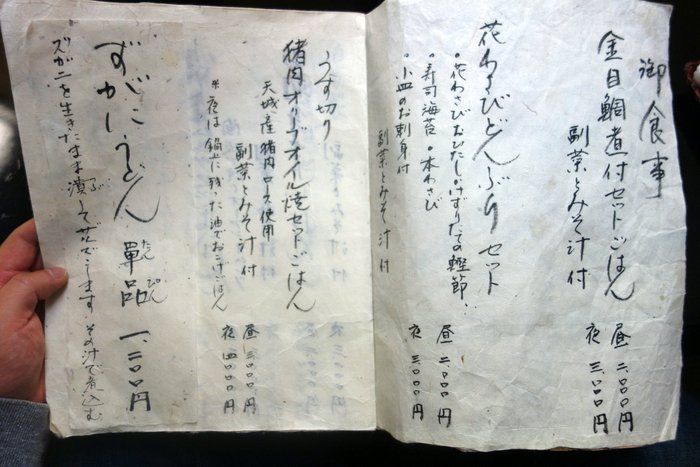 御食事
金目鯛煮付セットごはん
副菜とみそ汁付
昼 二、〇〇〇円
夜 三、〇〇〇円
花わさびどんぶりセット
•花わさびおひたし•けずりたての鰹節
•寿司海苔 •本わさび
•小皿のお刺身付
副菜とみそ汁付
昼 二、〇〇〇円
夜 三、〇〇〇円
うす切り
猪肉オリーブオイル焼セットごはん
副菜とみそ汁付
天城産猪肉ロース使用
※夜は鍋に残った油でおこげごはん
昼 三、〇〇〇円
夜 四、〇〇〇円
ずがにうどん 単品 一、二〇〇円
たんぴん
ズガニを生きたまま潰してザルでこします その汁で煮込む
つぶ